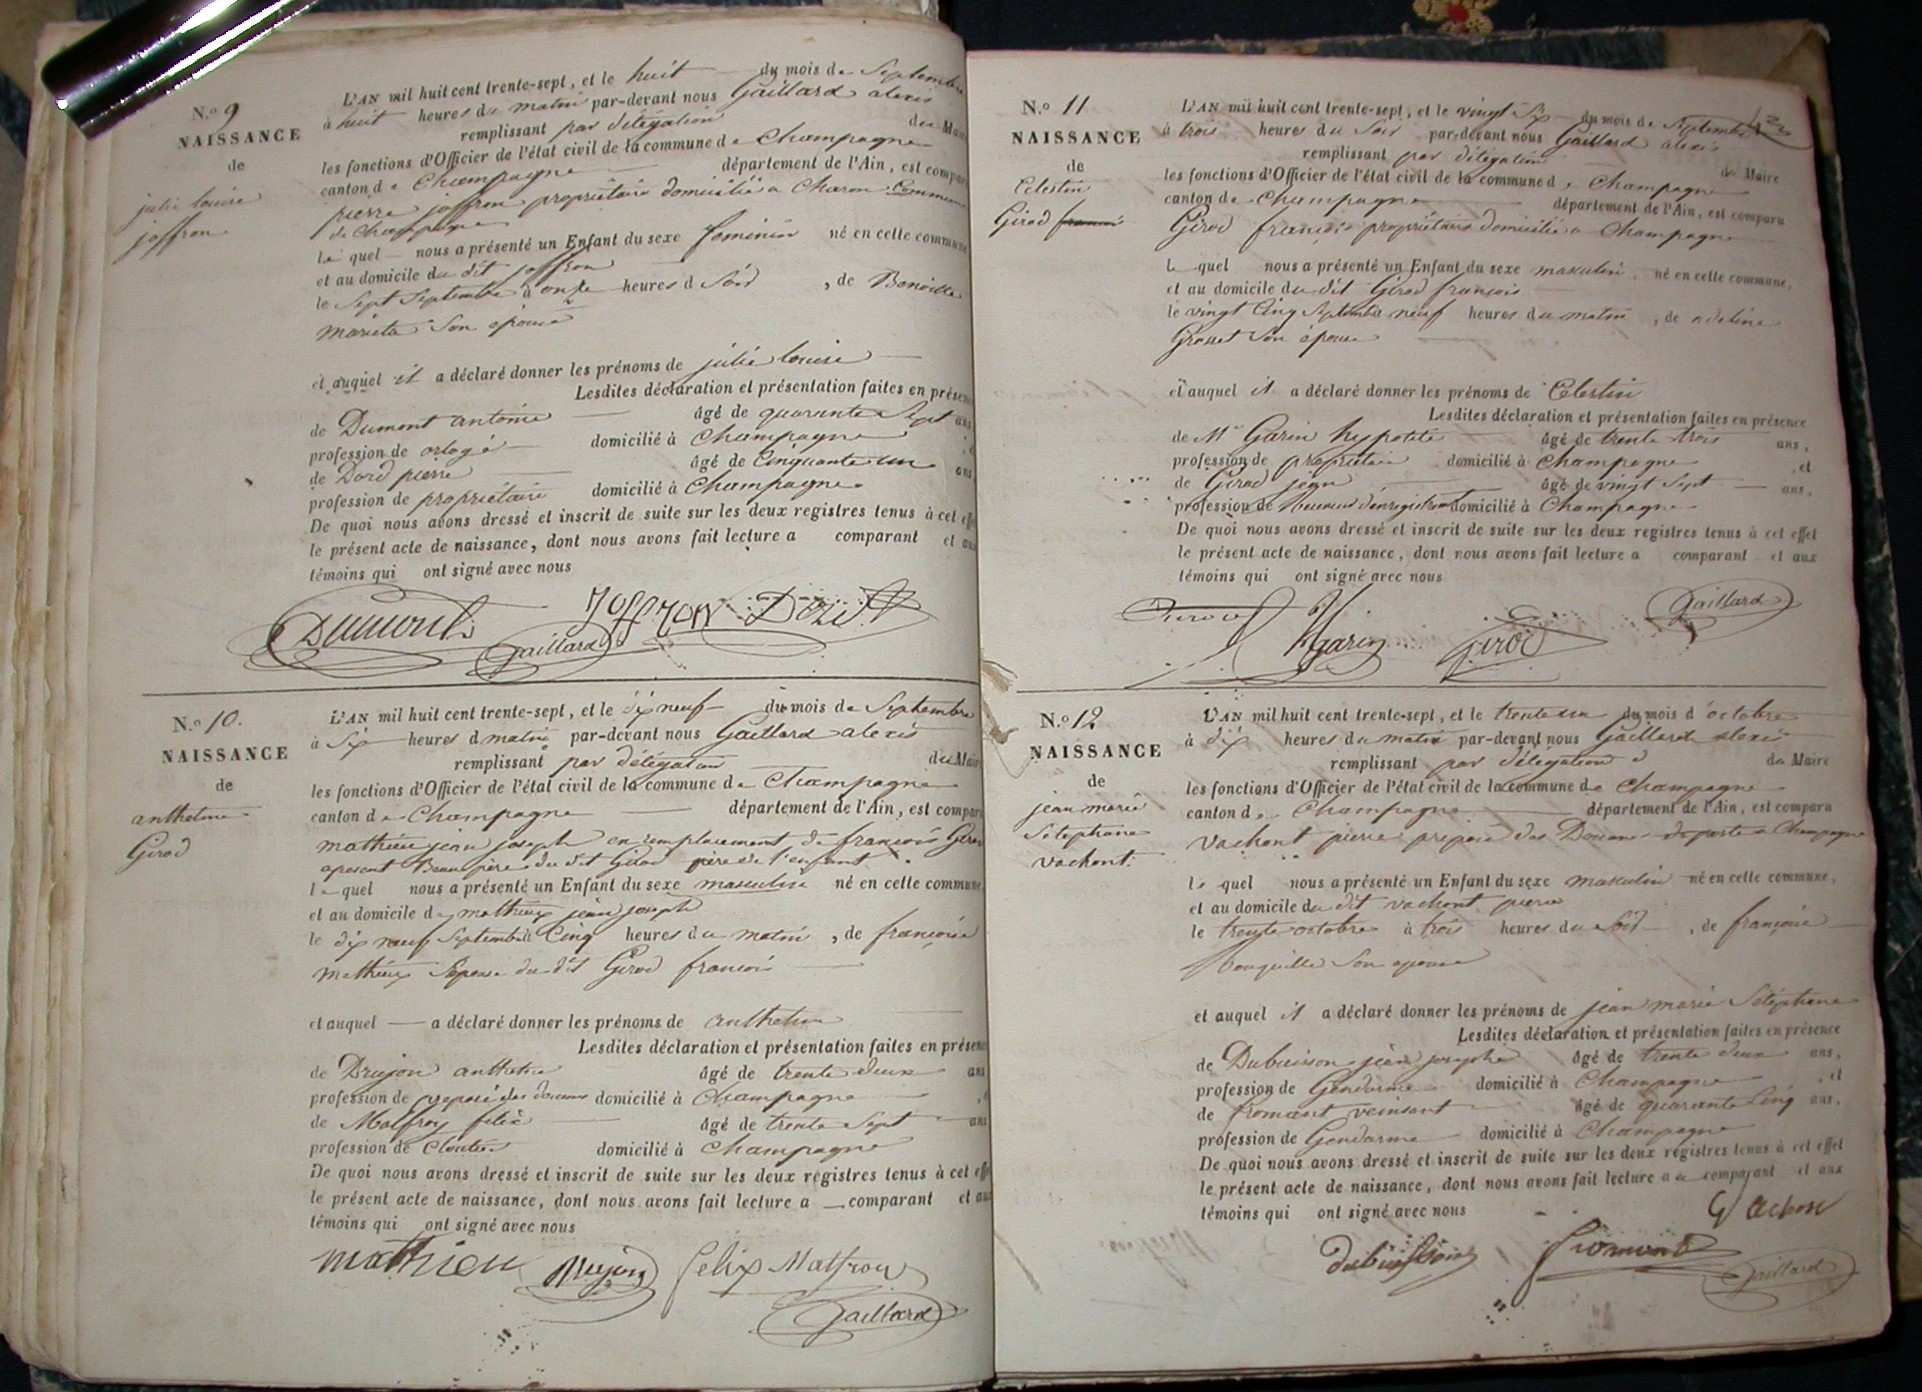 N.o 9
NAISSANCE
de
julie louise
joffron
L'AN mil huit cent trente-sept, et le huit du mois de Septembre
à huit heures du matin par-devant nous Gaillard alexis
remplissant par délégation du Maire
les fonctions d'Officier de l'état civil de la commune de Champagne
canton de Champagne département de l'Ain, est comparu
pierre joffron propriétaire domicilié a Charon Commune
de Champagne
le quel nous a présenté un Enfant du sexe feminin né en cette commune
et au domicile du dit joffron
le Sept Septembre à onze heures d Soir, de
marieta Son épouse
et auquel il a déclaré donner les prénoms de julie louise
Lesdites déclaration et présentation faites en présence
de Dumont antoine âgé de quarante Sept ans
profession de domicilié à Champagne
de pierre âgé de Cinquante un ans
profession de propriétaire domicilié à Champagne
De quoi nous avons dressé et inscrit de suite sur les deux registres tenus à cet effet
le présent acte de naissance, dont nous avons fait lecture a comparant et aux
témoins qui ont signé avec nous
Dumont Joffron
Gaillard
N.o 10.
NAISSANCE
de
anthelme
Girod
L'AN mil huit cent trente-sept, et le dix neuf du mois de Septembre
à Six heures d matin par-devant nous Gaillard alexis
remplissant par délégation du Maire
les fonctions d'Officier de l'état civil de la commune de Champagne
canton de Champagne département de l'Ain, est comparu
mathieu jean joseph en remplacement de françois Girod
apesent Beaupère du dit Girod père de l'enfant
le quel nous a présenté un Enfant du sexe masculin né en cette commune
et au domicile de mathieux jean joseph
le dix neuf Septembre à Cinq heures du matin, de françoise
mathieux l'épouse du dit Girod francois
et auquel a déclaré donner les prénoms de anthelme
Lesdites déclaration et présentation faites en présence
de Drujon anthelme âgé de trente deux ans
profession de preposé des douanes domicilié à Champagne
de Malfroy félix âgé de trente Sept ans
profession de Cloutier domicilié à Champagne
De quoi nous avons dressé et inscrit de suite sur les deux registres tenus à cet effet
le présent acte de naissance, dont nous avons fait lecture a comparant et aux
témoins qui ont signé avec nous
mathieu Drujon felix Malfroy
Gaillard
N.o 11
NAISSANCE
de
Celestin
Girod francois
L'AN mil huit cent trente-sept, et le vingt Six du mois de Septembre
à trois heures du Soir par-devant nous Gaillard alexis
remplissant par délégation du Maire
les fonctions d'Officier de l'état civil de la commune de Champagne
canton de Champagne département de l'Ain, est comparu
Girod françois propriétaire domicilié a Champagne
le quel nous a présenté un Enfant du sexe masculin né en cette commune,
et au domicile du dit Girod françois
le vingt Cinq Septembre neuf heures du matin, de adeline
Grosset Son épouse
et auquel il a déclaré donner les prénoms de Celestin
Lesdites déclaration et présentation faites en présence
de Mr Garin hypolite âgé de trente trois ans,
profession de propriétaire domicilié à Champagne, et
de Girod jean âgé de vingt Sept ans,
profession de Receveur d'enregistrement domicilié à Champagne
De quoi nous avons dressé et inscrit de suite sur les deux registres tenus à cet effet
le présent acte de naissance, dont nous avons fait lecture a comparant et aux
témoins qui ont signé avec nous
Girod HGarin Girod Gaillard
N.o 12
NAISSANCE
de
jean marie
Stéphane
vachont
L'AN mil huit cent trente-sept, et le trente un du mois d'octobre
à dix heures du matin par-devant nous Gaillard alexis
remplissant par délégation du Maire
les fonctions d'Officier de l'état civil de la commune de Champagne
canton de Champagne département de l'Ain, est comparu
vachont pierre préposé des Douanes au poste a Champagne
le quel nous a présenté un Enfant du sexe masculin né en cette commune,
et au domicile du dit vachont pierre
le trente octobre à trois heures du Soir, de françoise
Son épouse
et auquel il a déclaré donner les prénoms de jean marie Stéphane
Lesdites déclaration et présentation faites en présence
de Dubuisson jean josephe âgé de trente deux ans,
profession de Gendarme domicilié à Champagne, et
de fromant veinsant âgé de quarante Cinq ans,
profession de Gendarme domicilié à Champagne
De quoi nous avons dressé et inscrit de suite sur les deux registres tenus à cet effet
le présent acte de naissance, dont nous avons fait lecture au comparant et aux
témoins qui ont signé avec nous
Dubuisson fromant Gaillard